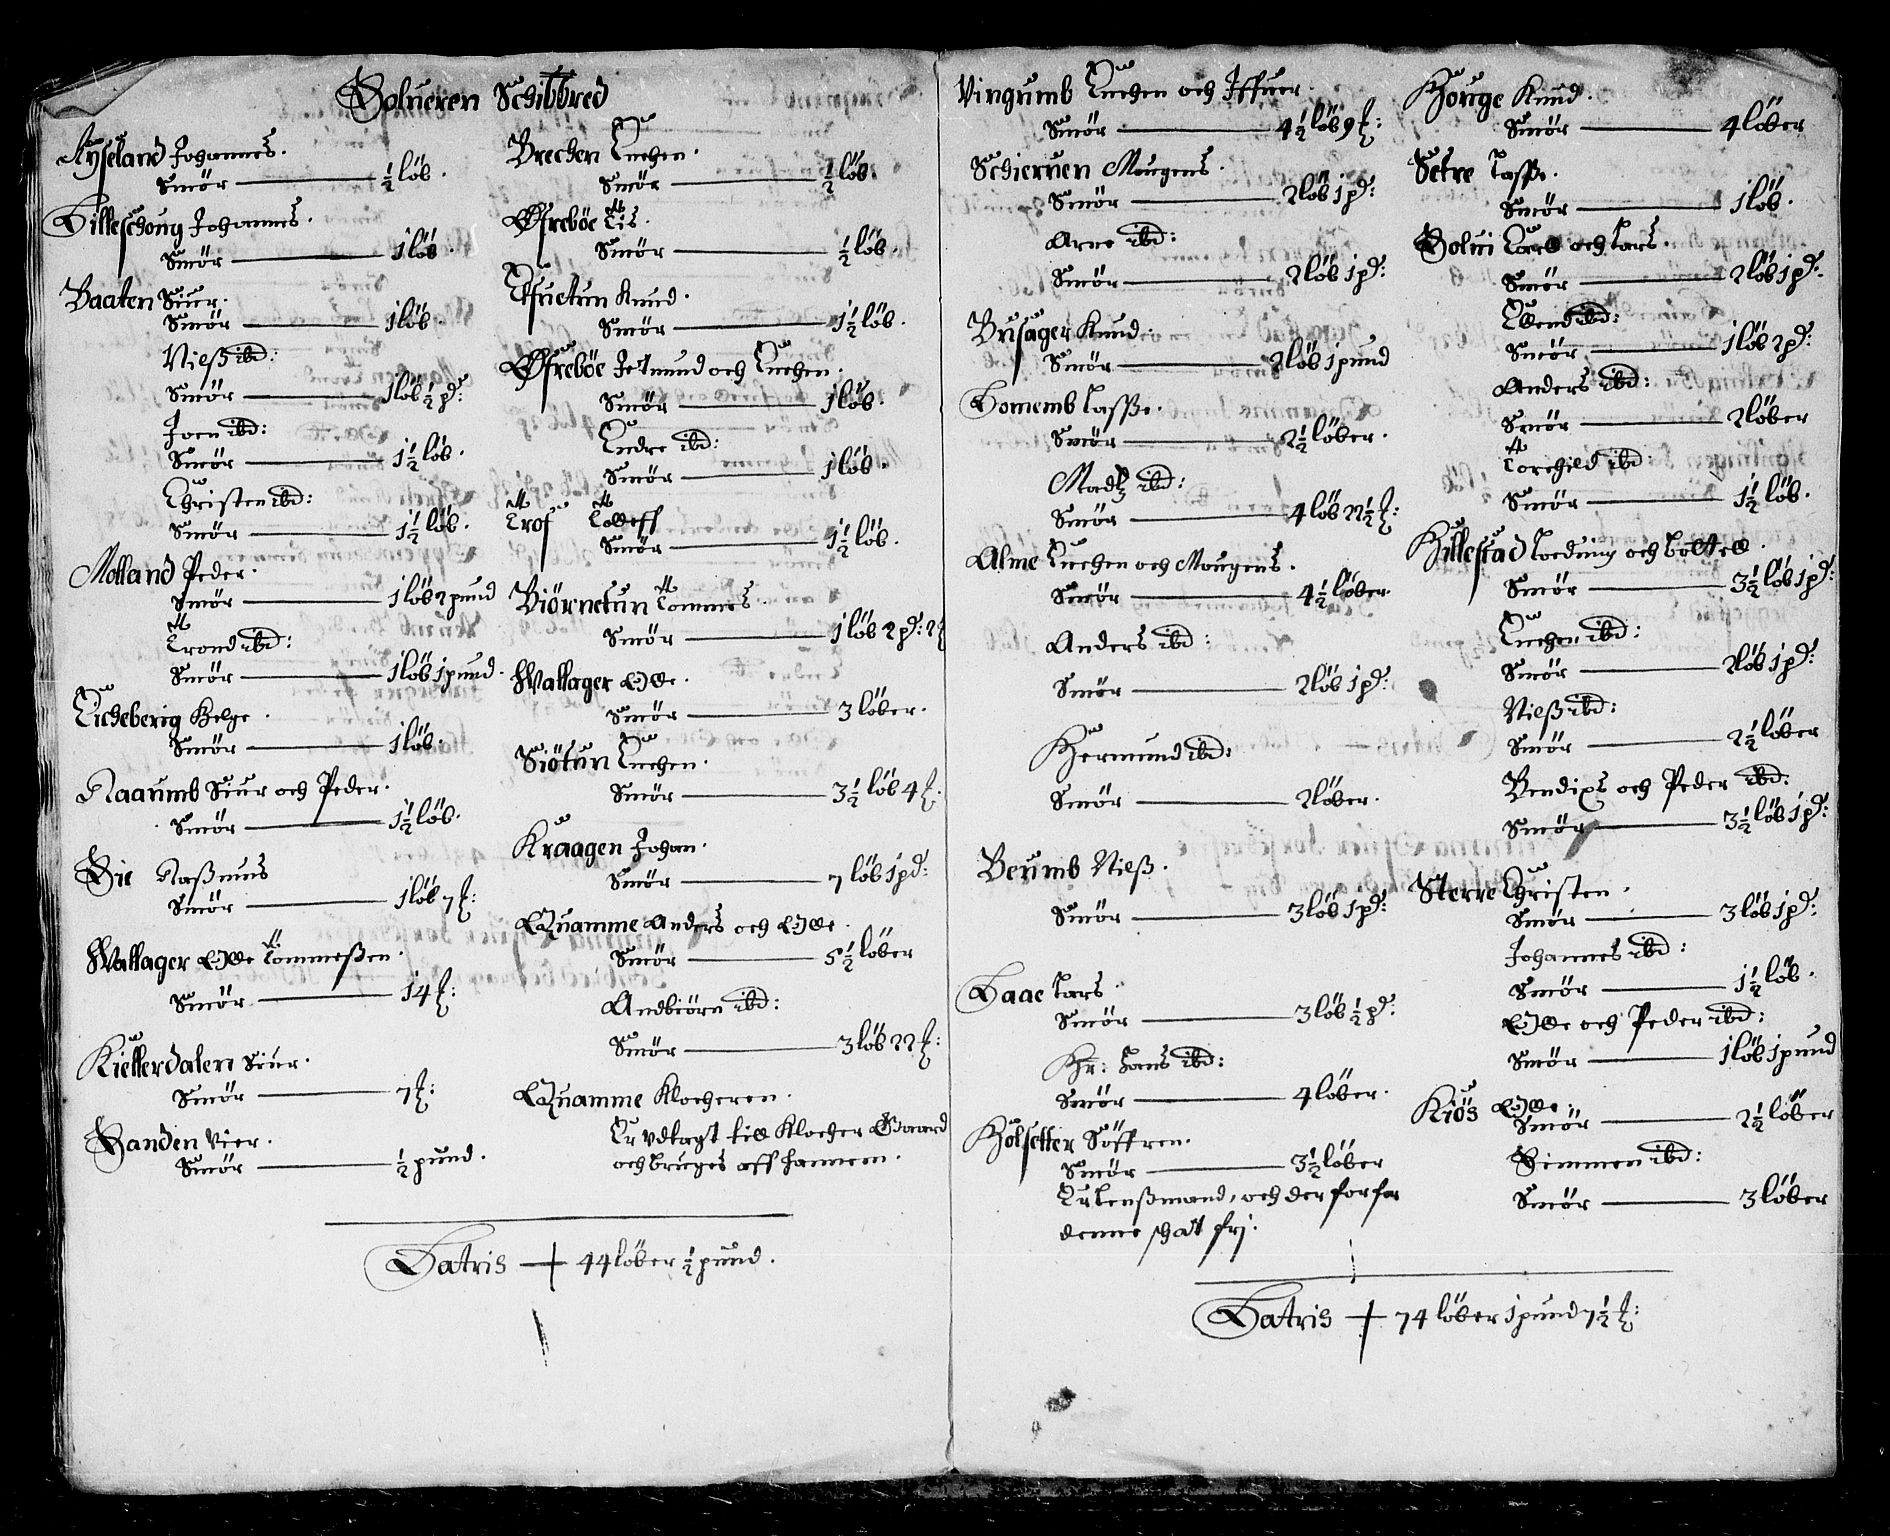 Solueren Schibbred
Ryseland Johannes.
Smör — ½ löb.
Hilleschoug Johannes.
Smör — 1 löb.
Baaten Siur.
Smör — 1 löb.
Nielß ibd:
Smör — 1 löb ½ pd:
Joen ibd:
Smör — 1½ löb.
Christen ibd:
Smör — 1½ löb.
Molland Peder.
Smör — 1 löb 2 pund
Trond ibd:
Smör — 1 löb 1 pund.
Eicheberig Helge.
Smör — 1 löb.
Naarumb Siur och Peder.
Smör — 1½ löb.
Sie Raßmus
Smör — 1 löb 7 ℔:
Wallager Olle Tommeßen.
Smör — 14 ℔:
Kiellerdalen Siur.
Smör — 7 ℔:
Sanden Vier.
Smör — ½ pund.
Brechen Euchen.
Smör — ½ löb.
Öfreböe Eis.
Smör — ½ löb.
Tfuetun Knud.
Smör — 1½ löb.
Öfreböe Jetmund och Euchen.
Smör — 1 löb.
Endre ibd:
Smör — 1 löb.
Trof Tolleff
Smör — 1½ löb.
Biörnetun Tommes.
Smör — 1 löb 2 pd: 2 ℔
Wallager Olle.
Smör — 3 löber.
Siötun Euchen.
Smör — 3½ löb 4 ℔.
Kraagen Johan.
Smör — 7 löb 1 pd:
Quamme Anders och Olle.
Smör — 5½ löber
Andbiörn ibd:
Smör — 3 löb 22 ℔:
Quamme Klocheren.
Er Vdlagt till Klocher Gaard
och bruges aff hannem.
Latris — 44 löber ½ pund.
Vingumb Euchen och Iffuer.
Smör — 4½ löb 9 ℔:
Schieruen Mougens.
Smör — 2 löb 1 pd:
Arne ibd:
Smör — 2 löb 1 pd:
Brisager Knud.
Smör — 2 löb 1 pund
Homemb Lasße.
Smör — 2½ löber.
Madtz ibd:
Smör — 4 löb 22½ ℔:
Alme Euchen och Mougens.
Smör — 4½ löber.
Anders ibd:
Smör — 2 löb 1 pd:
Hermund ibd:
Smör — 2 löber.
Berumb Nielß.
Smör — 3 löb 1 pd:
Haae Lars.
Smör — 3 löb ½ pd:
Hr: Hans ibd:
Smör — 4 löber.
Hölsetter Söffren.
Smör — 3½ löber
Er Lenßmand, och der for for
denne schat frj.
Houge Knud.
Smör — 4 löber
Setre Lasße.
Smör — 1 löb.
Solui Carll och Lars.
Smör — 2 löb 1 pd:
Ellend ibd:
Smör — 1 löb 2 pd:
Anders ibd:
Smör — 2 löber
Torchild ibd:
Smör — 1½ löb.
Hillestad Loeduig och Botted.
Smör — 3½ löb 1 pd:
Euchen ibd:
Smör — 2 löb 1 pd:
Nielß ibd:
Smör — 2½ löber
Bendixs och Peder ibd:
Smör — 3½ löb 1 pd:
Sterre Christen.
Smör — 3 löb 1 pd:
Johannes ibd:
Smör — 1½ löb.
Olle och Peder ibd:
Smör — 1 löb 1 pund
Kiös Olle.
Smör — 2½ löber
Simmen ibd:
Smör — 3 löber
Latris — 74 löber 1 pund 7½ ℔: